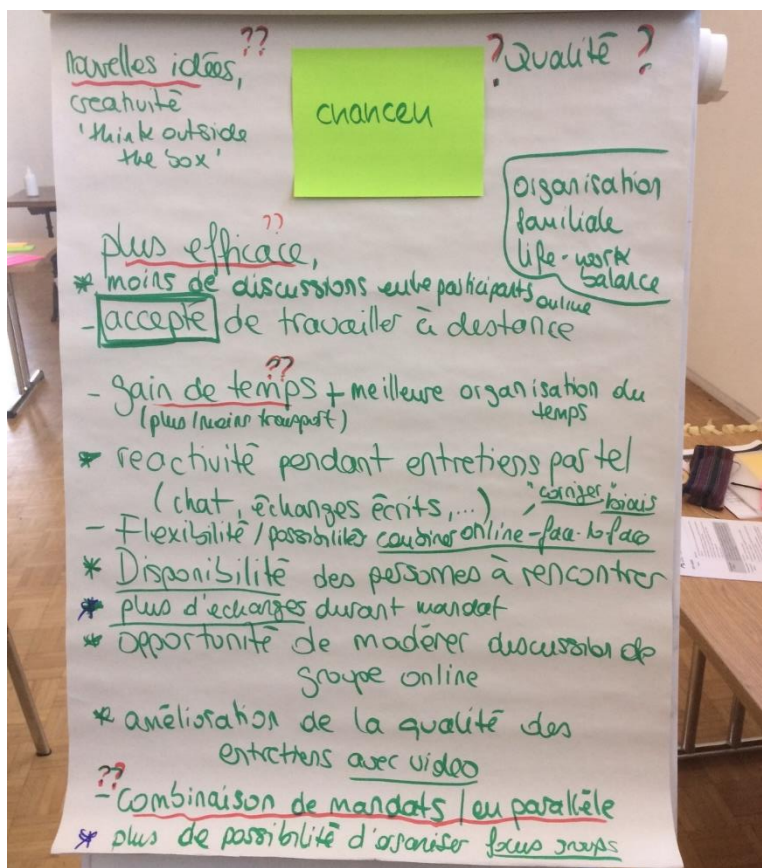 nouvelles idées, ??
creativité
'think outside
the box'
chancen
? Qualité ?
organisation
familiale
life-work
balance
plus efficace, ??
* moins de discussions entre participants online
- accepte de travailler à distance
- gain de temps ?? + meilleure organisation du
temps
(plus/moins transport)
* reactivité pendant entretiens par tel
(chat, échanges écrits, ...)
"corriger" biais
- Flexibilité / possibilités combiner online-face-to face
* Disponibilité des personnes à rencontrer
* plus d'echanges durant mandat
* opportunité de modérer discussion de
groupe online
* amélioration de la qualité des
entretiens avec video
??
- Combinaison de mandats / en parallèle
* plus de possibilité d'organiser focus groups